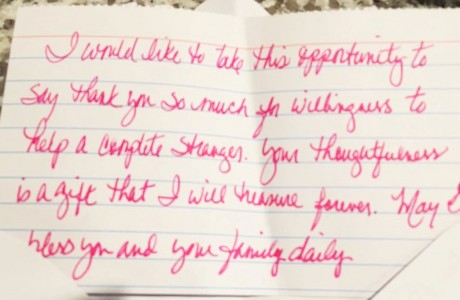 I would like to take this opportunity to
say thank you so much for willingness to
help a complete stranger. Your thoughtfulness
is a gift that I will treasure forever. May
bless you and your family daily